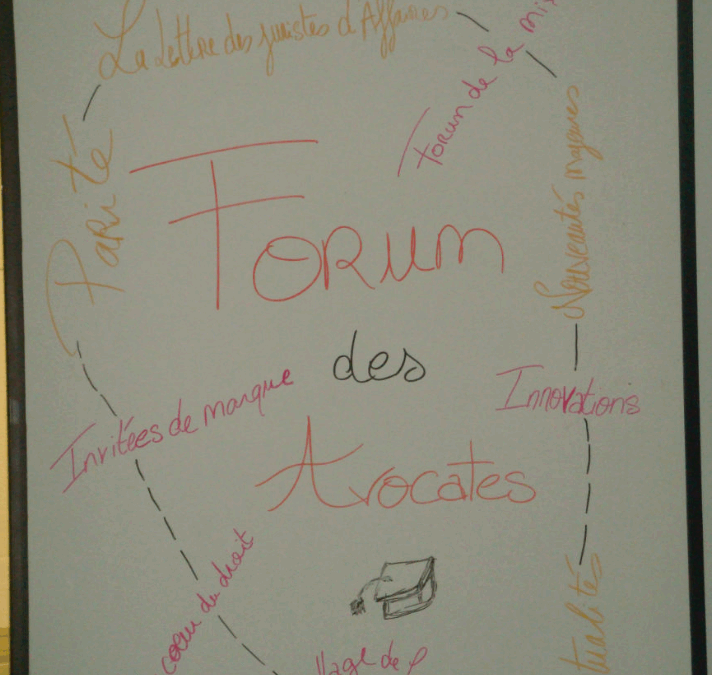 La Lettre des juristes d'Affaires
Forum de la
Parité
Nouveautés majeures
Forum
des
Avocates
Invitées de marque
Innovations
coeur du droit